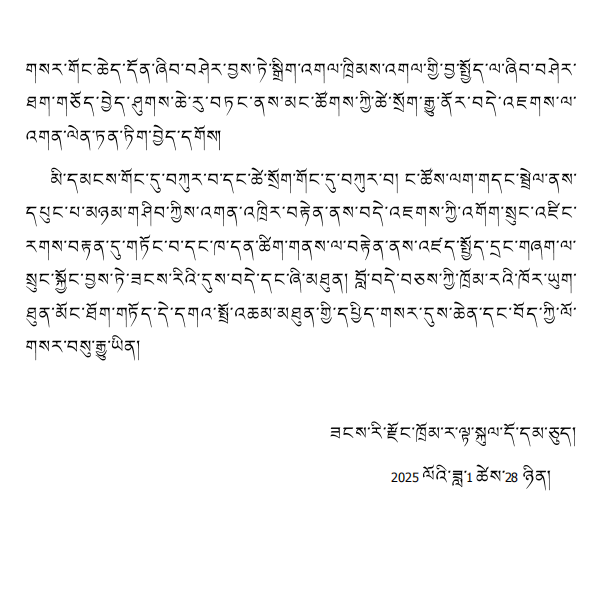 གསར་གོང་ཆེད་དོན་ཞིབ་བཤེར་བྱས་ཏེ་སྒྲིག་འགལ་ཁྲིམས་འགལ་གྱི་བྱ་སྤྱོད་ལ་ཞིབ་བཤེར་
ཐག་གཅོད་བྱེད་ཤུགས་ཆེ་རུ་བཏང་ནས་མང་ཚོགས་ཀྱི་ཚེ་སྲོག་རྒྱུ་ནོར་བདེ་འཇགས་ལ་
འགན་ལེན་ཏན་ཏིག་བྱེད་དགོས།
མི་དམངས་གོང་དུ་བཀུར་བ་དང་ཚེ་སྲོག་གོང་དུ་བཀུར་བ། ང་ཚོས་ལག་གདང་སྦྲེལ་ནས་
དཔུང་པ་མཉམ་གཤིབ་ཀྱིས་འགན་འཁྲིར་བརྟེན་ནས་བདེ་འཇགས་ཀྱི་འགོག་སྲུང་འཛིང་
རགས་བརྟན་དུ་གཏོང་བ་དང་ཁ་དན་ཚིག་གནས་ལ་བརྟེན་ནས་འཛད་སྤྱོད་དྲང་གཞག་ལ་
སྲུང་སྐྱོང་བྱས་ཏེ་ཟངས་རིའི་དུས་བདེ་དང་ཞི་མཐུན། བློ་བདེ་བཅས་ཀྱི་ཁྲོམ་རའི་ཁོར་ཡུག་
ཐུན་མོང་ཐོག་གཏོད་དེ་དགའ་སྤྲོ་འཆམ་མཐུན་གྱི་དཔྱིད་གསར་དུས་ཆེན་དང་བོད་ཀྱི་ལོ་
གསར་བསུ་རྒྱུ་ཡིན།
ཟངས་རི་རྫོང་ཁྲོམ་ར་ལྟ་སྐུལ་དོ་དམ་ཅུད།
2025 ལོའི་ཟླ་1 ཚེས་28 ཉིན།